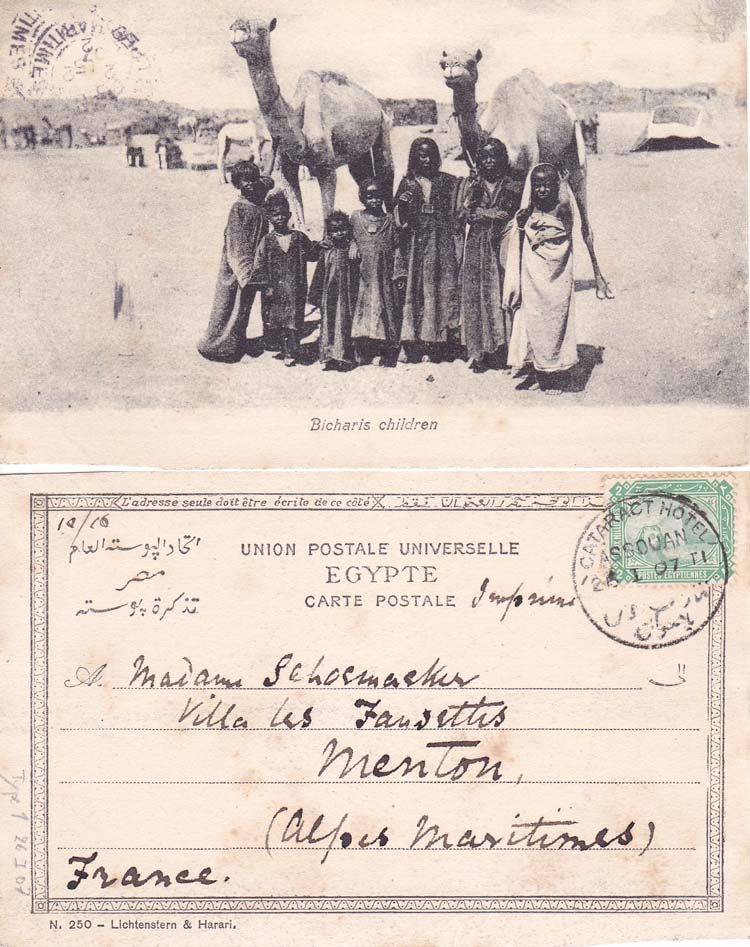 MARITIMES
TIMES
Bicharis children
L'adresse seule doit être écrite de ce côté
10/16
اتحاد البوسته العام
مصر
تذكرة بوسته
UNION POSTALE UNIVERSELLE
EGYPTE
CARTE POSTALE
Imprimé
CATARACT HOTEL
ASSOUAN
26 I 07 T1
POSTES EGYPTIENNES
A Madame Schoemaeker
Villa les Fauvettes
Menton,
(Alpes Maritimes)
France.
الى
Type 1 26 I 07
N. 250 – Lichtenstern & Harari.